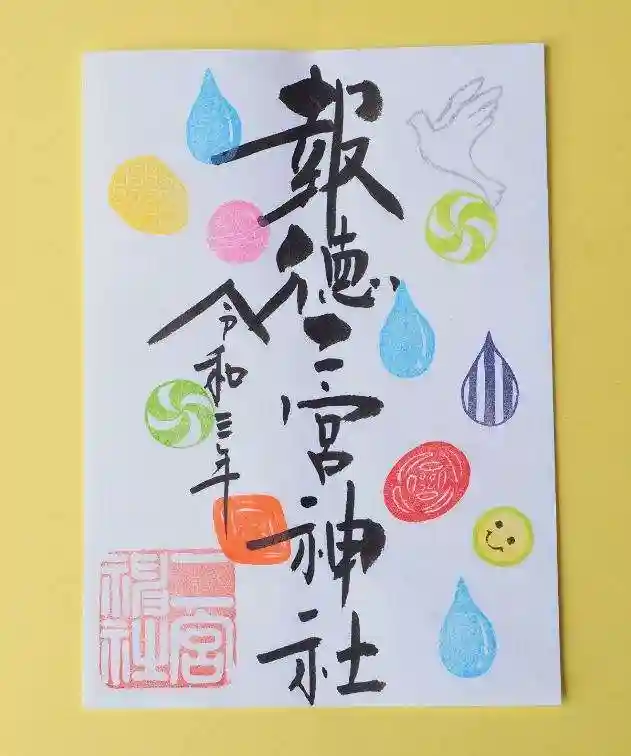 報徳二宮神社
令和三年
二宮
神社